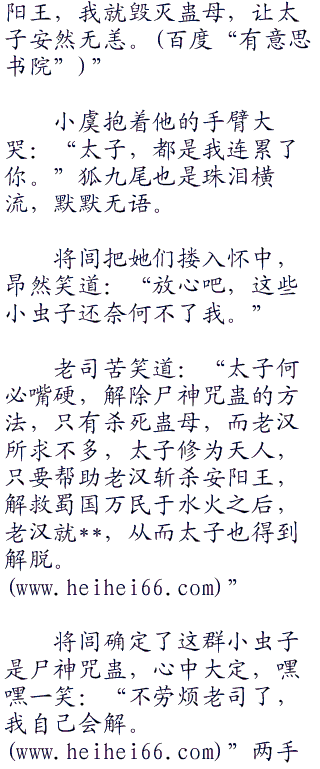 阳王，我就毁灭蛊母，让太
子安然无恙。(百度“有意思
书院”)”
小虞抱着他的手臂大
哭：“太子，都是我连累了
你。”狐九尾也是珠泪横
流，默默无语。
将闾把她们搂入怀中，
昂然笑道：“放心吧，这些
小虫子还奈何不了我。”
老司苦笑道：“太子何
必嘴硬，解除尸神咒蛊的方
法，只有杀死蛊母，而老汉
所求不多，太子修为天人，
只要帮助老汉斩杀安阳王，
解救蜀国万民于水火之后，
老汉就**，从而太子也得到
解脱。
(www.heihei66.com)”
将闾确定了这群小虫子
是尸神咒蛊，心中大定，嘿
嘿一笑：“不劳烦老司了，
我自己会解。
(www.heihei66.com)”两手